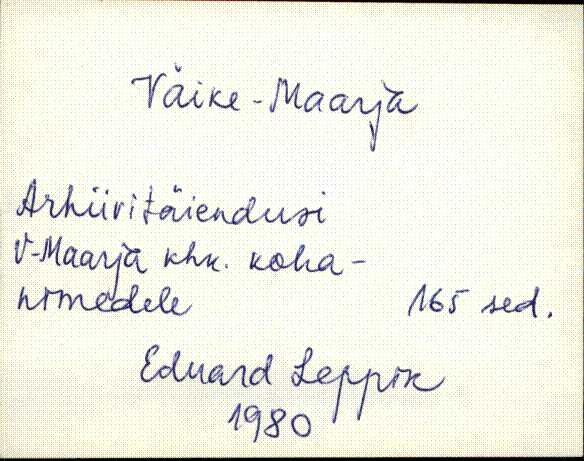 Väike-Maarja
Arhiivitäiendusi
V-Maarja khk. koha-
nimedele 165 sed.
Eduard Leppik
1980